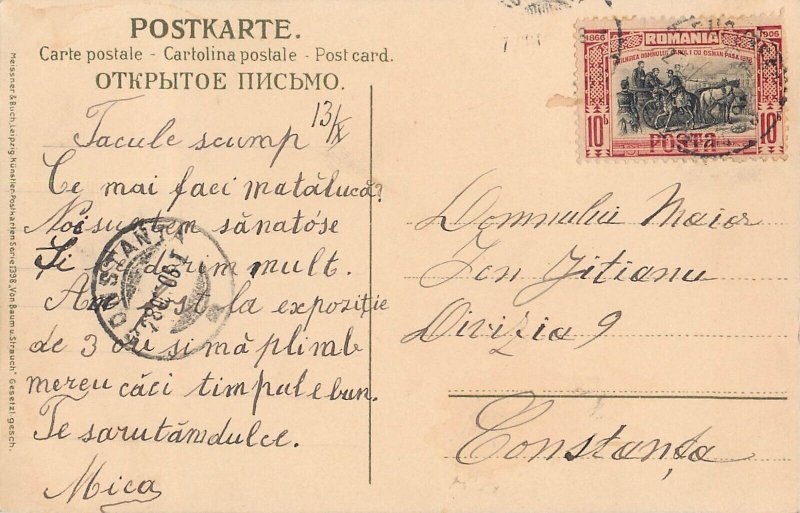 POSTKARTE.
Carte postale - Cartolina postale - Post card.
ОТКРЫТОЕ ПИСЬМО.
Meissner & Buch, Leipzig, Künstler-Postkarten Serie 1398, "Von Baum u. Strauch" Gesetzl. gesch.
1866 ROMANIA 1906
10 B POSTA 10 B
13/IX
Tacule scump
Ce mai faci matălucă?
Noi suntem sănatóse
Și dorim mult.
Am st la expoziție
de 3 ori si mă plimb
mereu căci timpul e bun.
Te sarutăm dulce.
Mica
CONSTANTA
Domnului Maior
Ion Jitianu
Divizia 9
Constanța